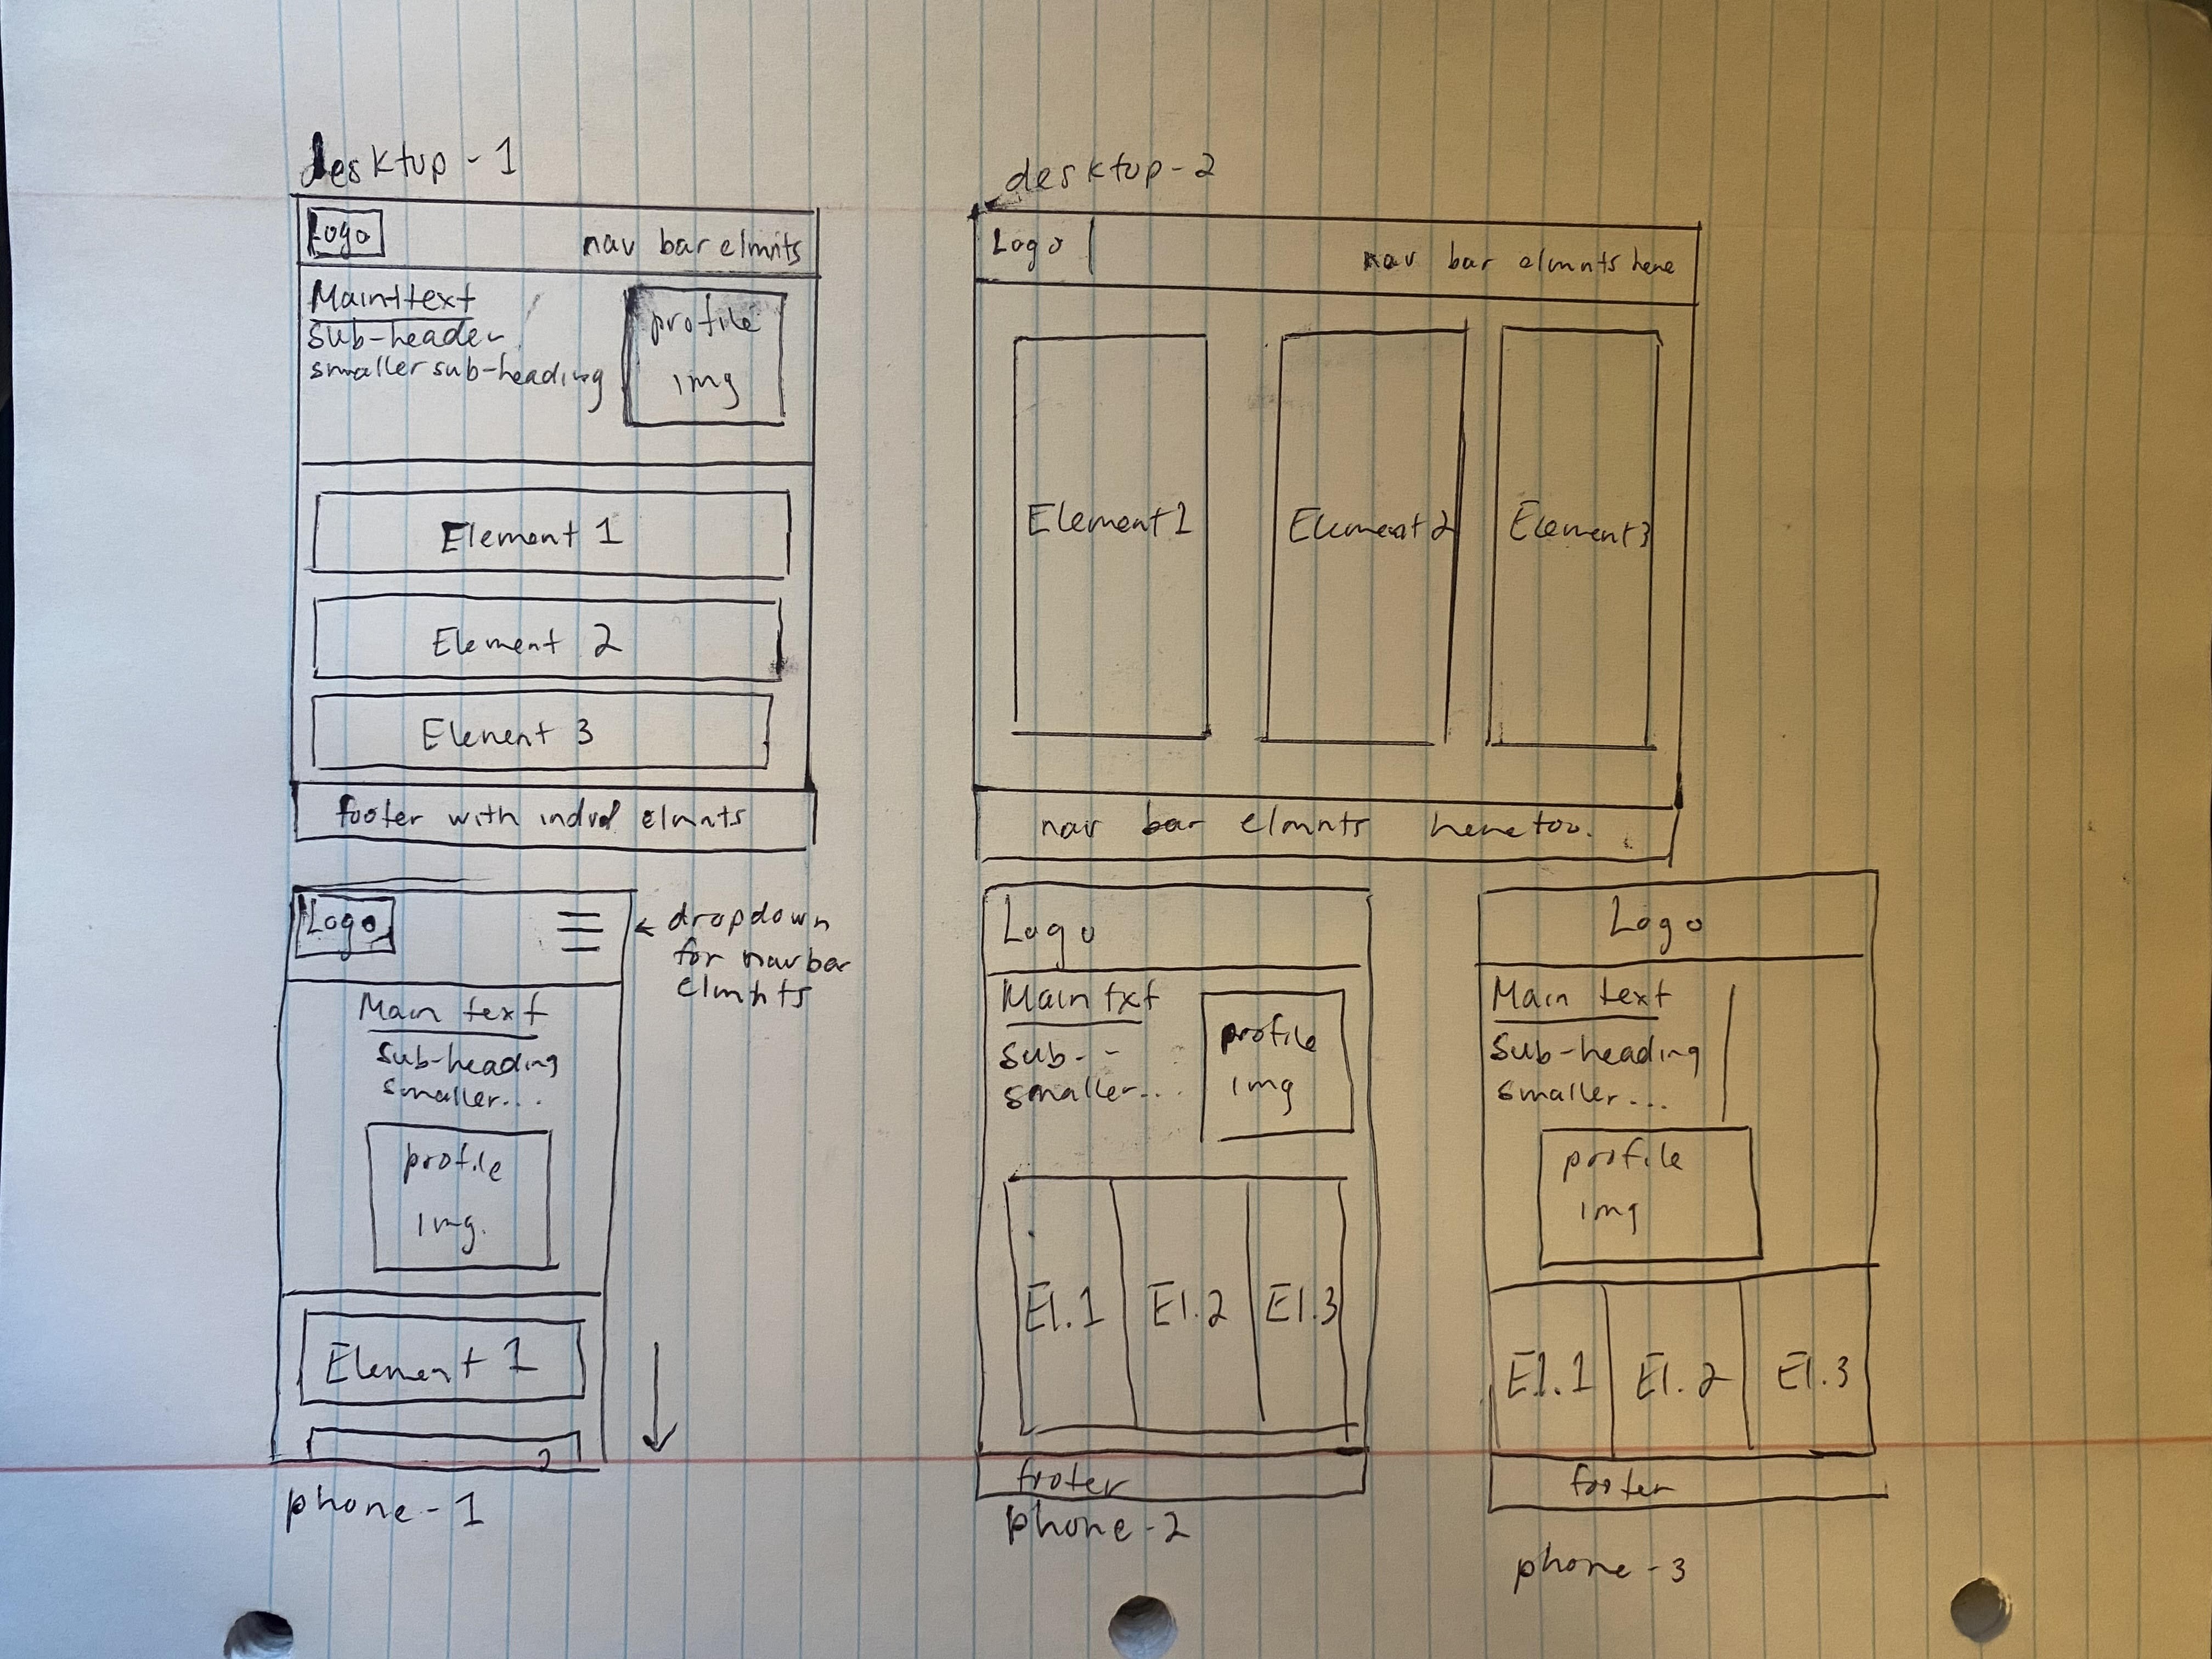 desktop-1
Logo
nav bar elmnts
Main text
sub-header
smaller sub-heading
profile
img
Element 1
Element 2
Element 3
footer with indvd elmnts
desktop-2
Logo
nav bar elmnts here
Element 1
Element 2
Element 3
nav bar elmnts here too.
Logo
← dropdown
for navbar
elmnts
Main text
Sub-heading
smaller...
profile
img.
Element 1
2
phone-1
Logo
Main txt
Sub--
smaller...
profile
img
El.1
El.2
El.3
footer
phone-2
Logo
Main text
Sub-heading
smaller...
profile
img
El.1
El.2
El.3
footer
phone-3